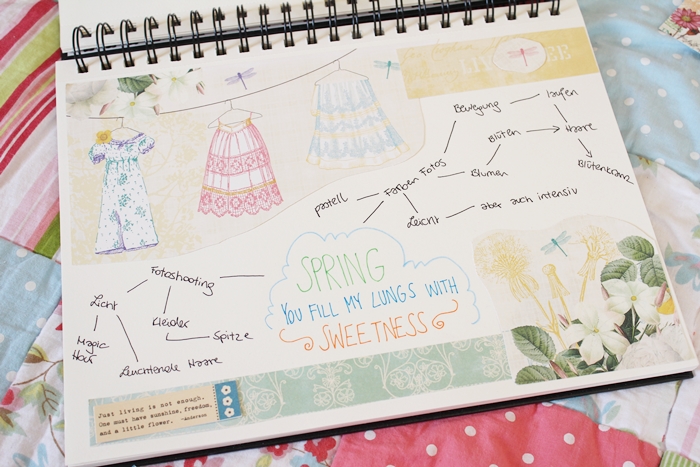 Bewegung
laufen
Blüten
Haare
Blumen
Blütenkranz
Farben Fotos
pastell
Leicht
aber auch intensiv
SPRING
YOU FILL MY LUNGS WITH
SWEETNESS
Fotoshooting
Licht
Kleider
Spitze
Magic
Leuchtende Haare
Just living is not enough.
One must have sunshine, freedom,
and a little flower. -Anderson